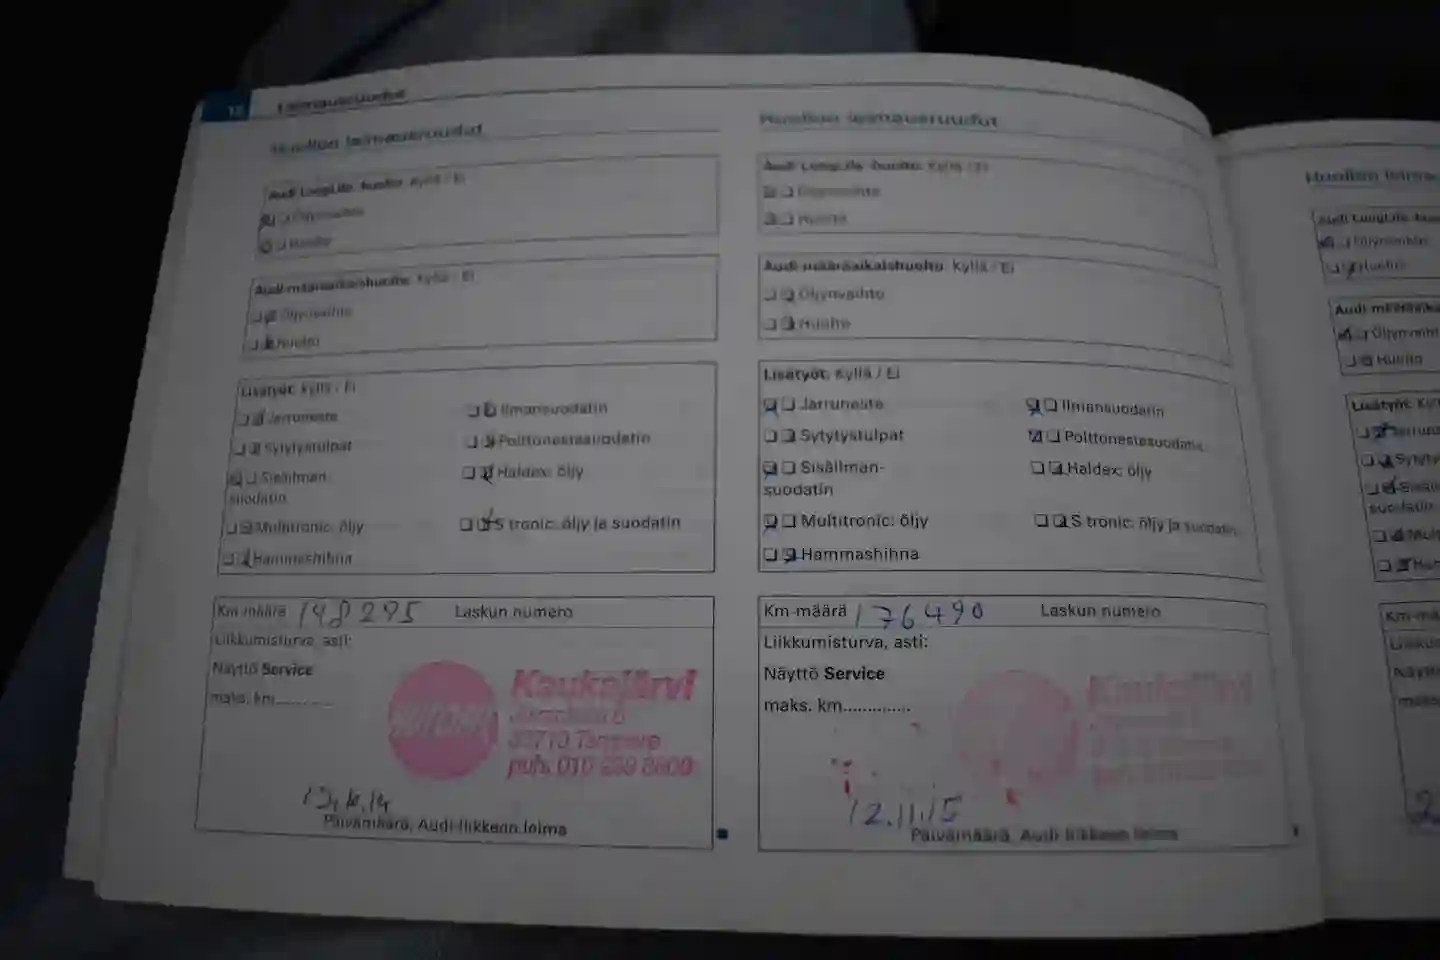 Leimausruudut
Huollon leimausruudut
Audi LongLife -huolto: Kyllä / Ei
Öljynvaihto
Huolto
Audi-määräaikaishuolto: Kyllä / Ei
Öljynvaihto
Huolto
Lisätyöt: Kyllä / Ei
Jarruneste
Ilmansuodatin
Sytytystulpat
Polttonestesuodatin
Sisäilman-
suodatin
Haldex: öljy
Multitronic: öljy
S tronic: öljy ja suodatin
Hammashihna
Km-määrä 148295 Laskun numero
Liikkumisturva, asti:
Näyttö Service
maks. km............
Kaukajärvi
33710 Tampere
puh. 010
Päivämäärä, Audi-liikkeen leima
Huollon leimausruudut
Audi LongLife -huolto: Kyllä / Ei
Öljynvaihto
Huolto
Audi-määräaikaishuolto: Kyllä / Ei
Öljynvaihto
Huolto
Lisätyöt: Kyllä / Ei
Jarruneste
Ilmansuodatin
Sytytystulpat
Polttonestesuodatin
Sisäilman-
suodatin
Haldex: öljy
Multitronic: öljy
S tronic: öljy ja suodatin
Hammashihna
Km-määrä 176490 Laskun numero
Liikkumisturva, asti:
Näyttö Service
maks. km.............
Kaukajärvi
12.11.15
Päivämäärä, Audi-liikkeen leima
Huollon leima
Öljynvaihto
Huolto
Öljynvaiht
Huolto
Lisätyöt: